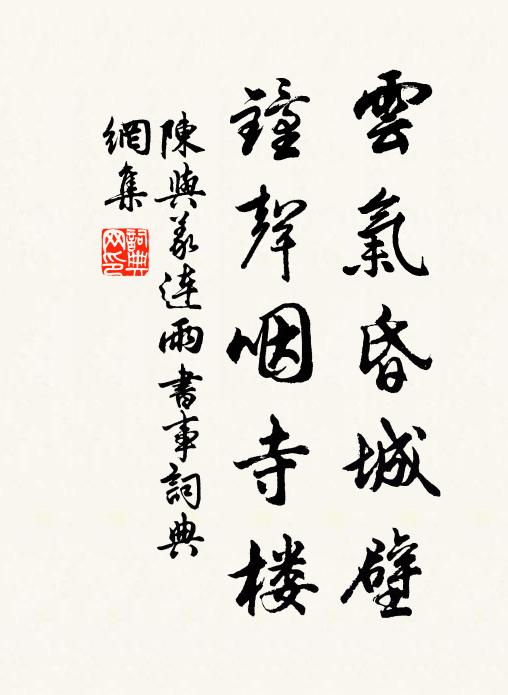 雲氣昏城壁
鐘聲咽寺楼
陳與義連雨書事詞典
網集
詞典
网印